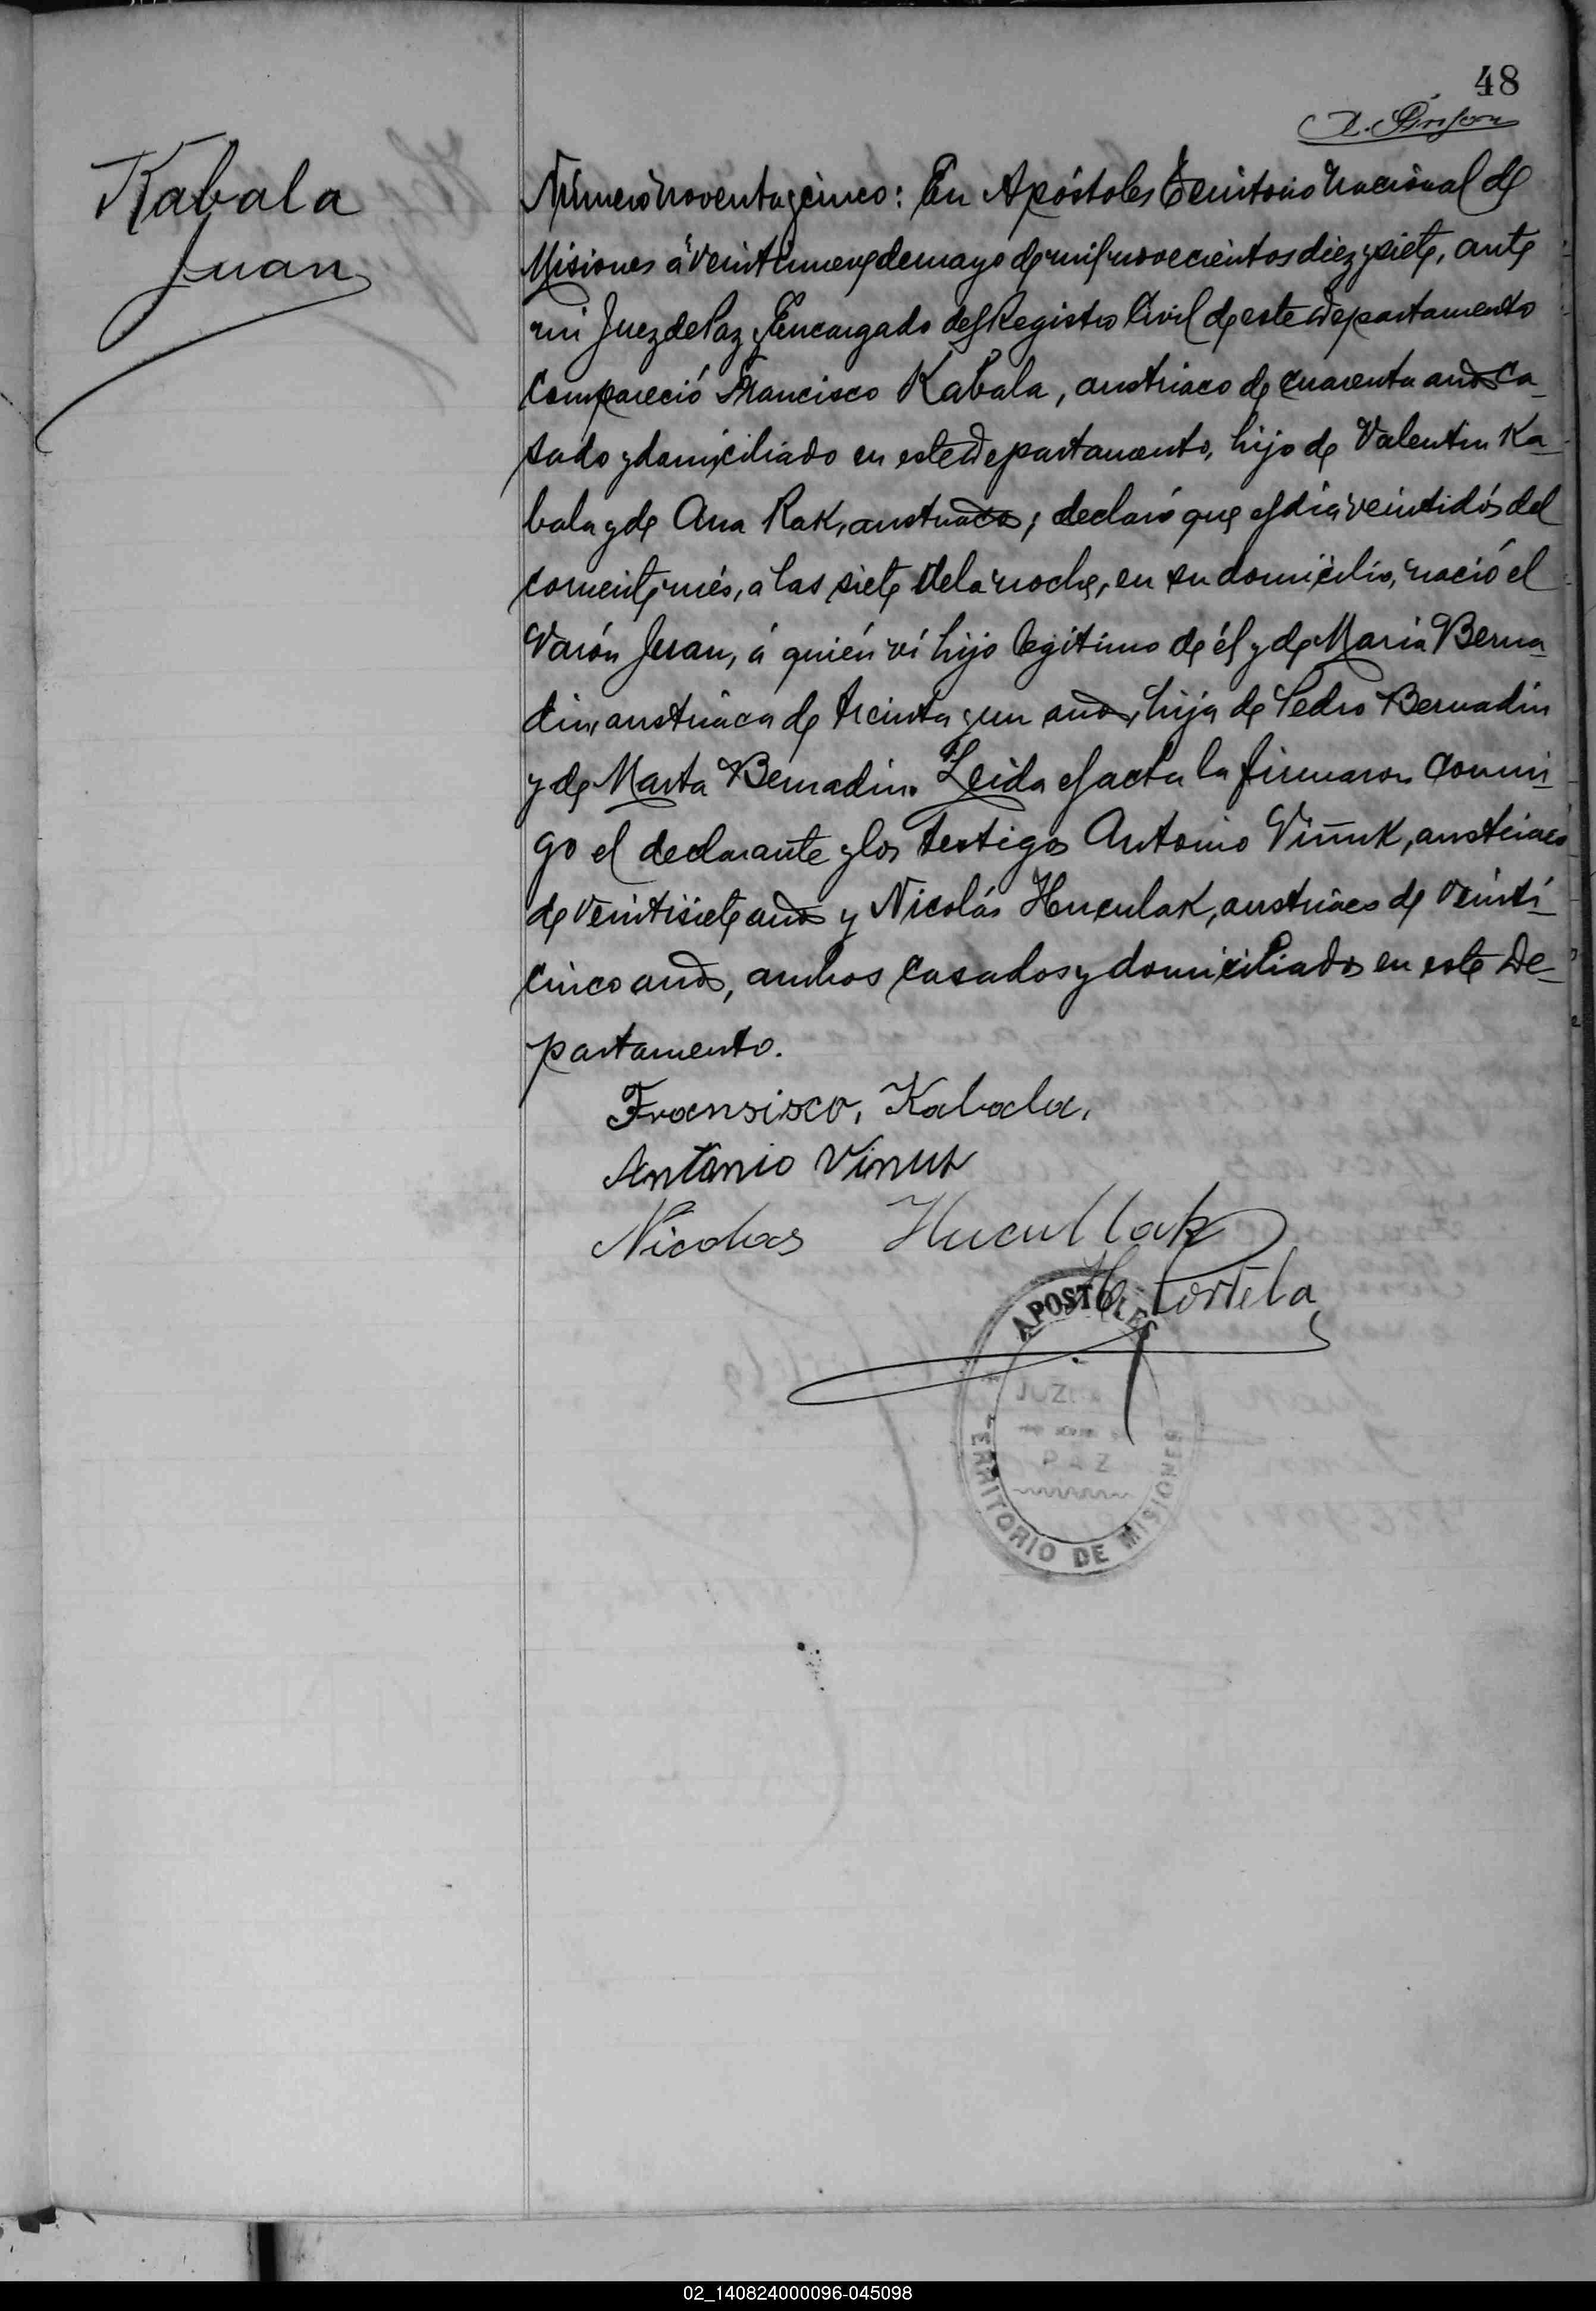 48
Kabala
Juan
Número noventa y cinco: En Apóstoles Territorio Nacional de
Misiones á veintinueve de mayo de mil novecientos diez y siete, ante
mi Juez de Paz y Encargado del Registro Civil de este Departamento
Compareció Francisco Kabala, austriaco de cuarenta años ca-
sado y domiciliado en este Departamento, hijo de Valentin Ka-
bala y de Ana Rak, austriacos; declaró que el día veintidós del
corriente més, a las siete de la noche, en su domicilio, nació el
Varón Juan, á quién ví hijo legitimo de él y de Maria Berna-
din, austriaca de treinta y un años, hija de Pedro Bernadin
y de Marta Bernadin. Leida el acta la firmaron conmi-
go el declarante y los testigos Antonio Viñuk, austriaco
de veintisiete años y Nicolás Huculak, austriaco de veinti-
cinco años, ambos casados y domiciliados en este De-
partamento.
Fransisco, Kabala,
Antonio Vinuk
Nicolas Hucullak
Portela
APOSTOLES
JUZ
PAZ
TERRITORIO DE MISIONES
02_140824000096-045098